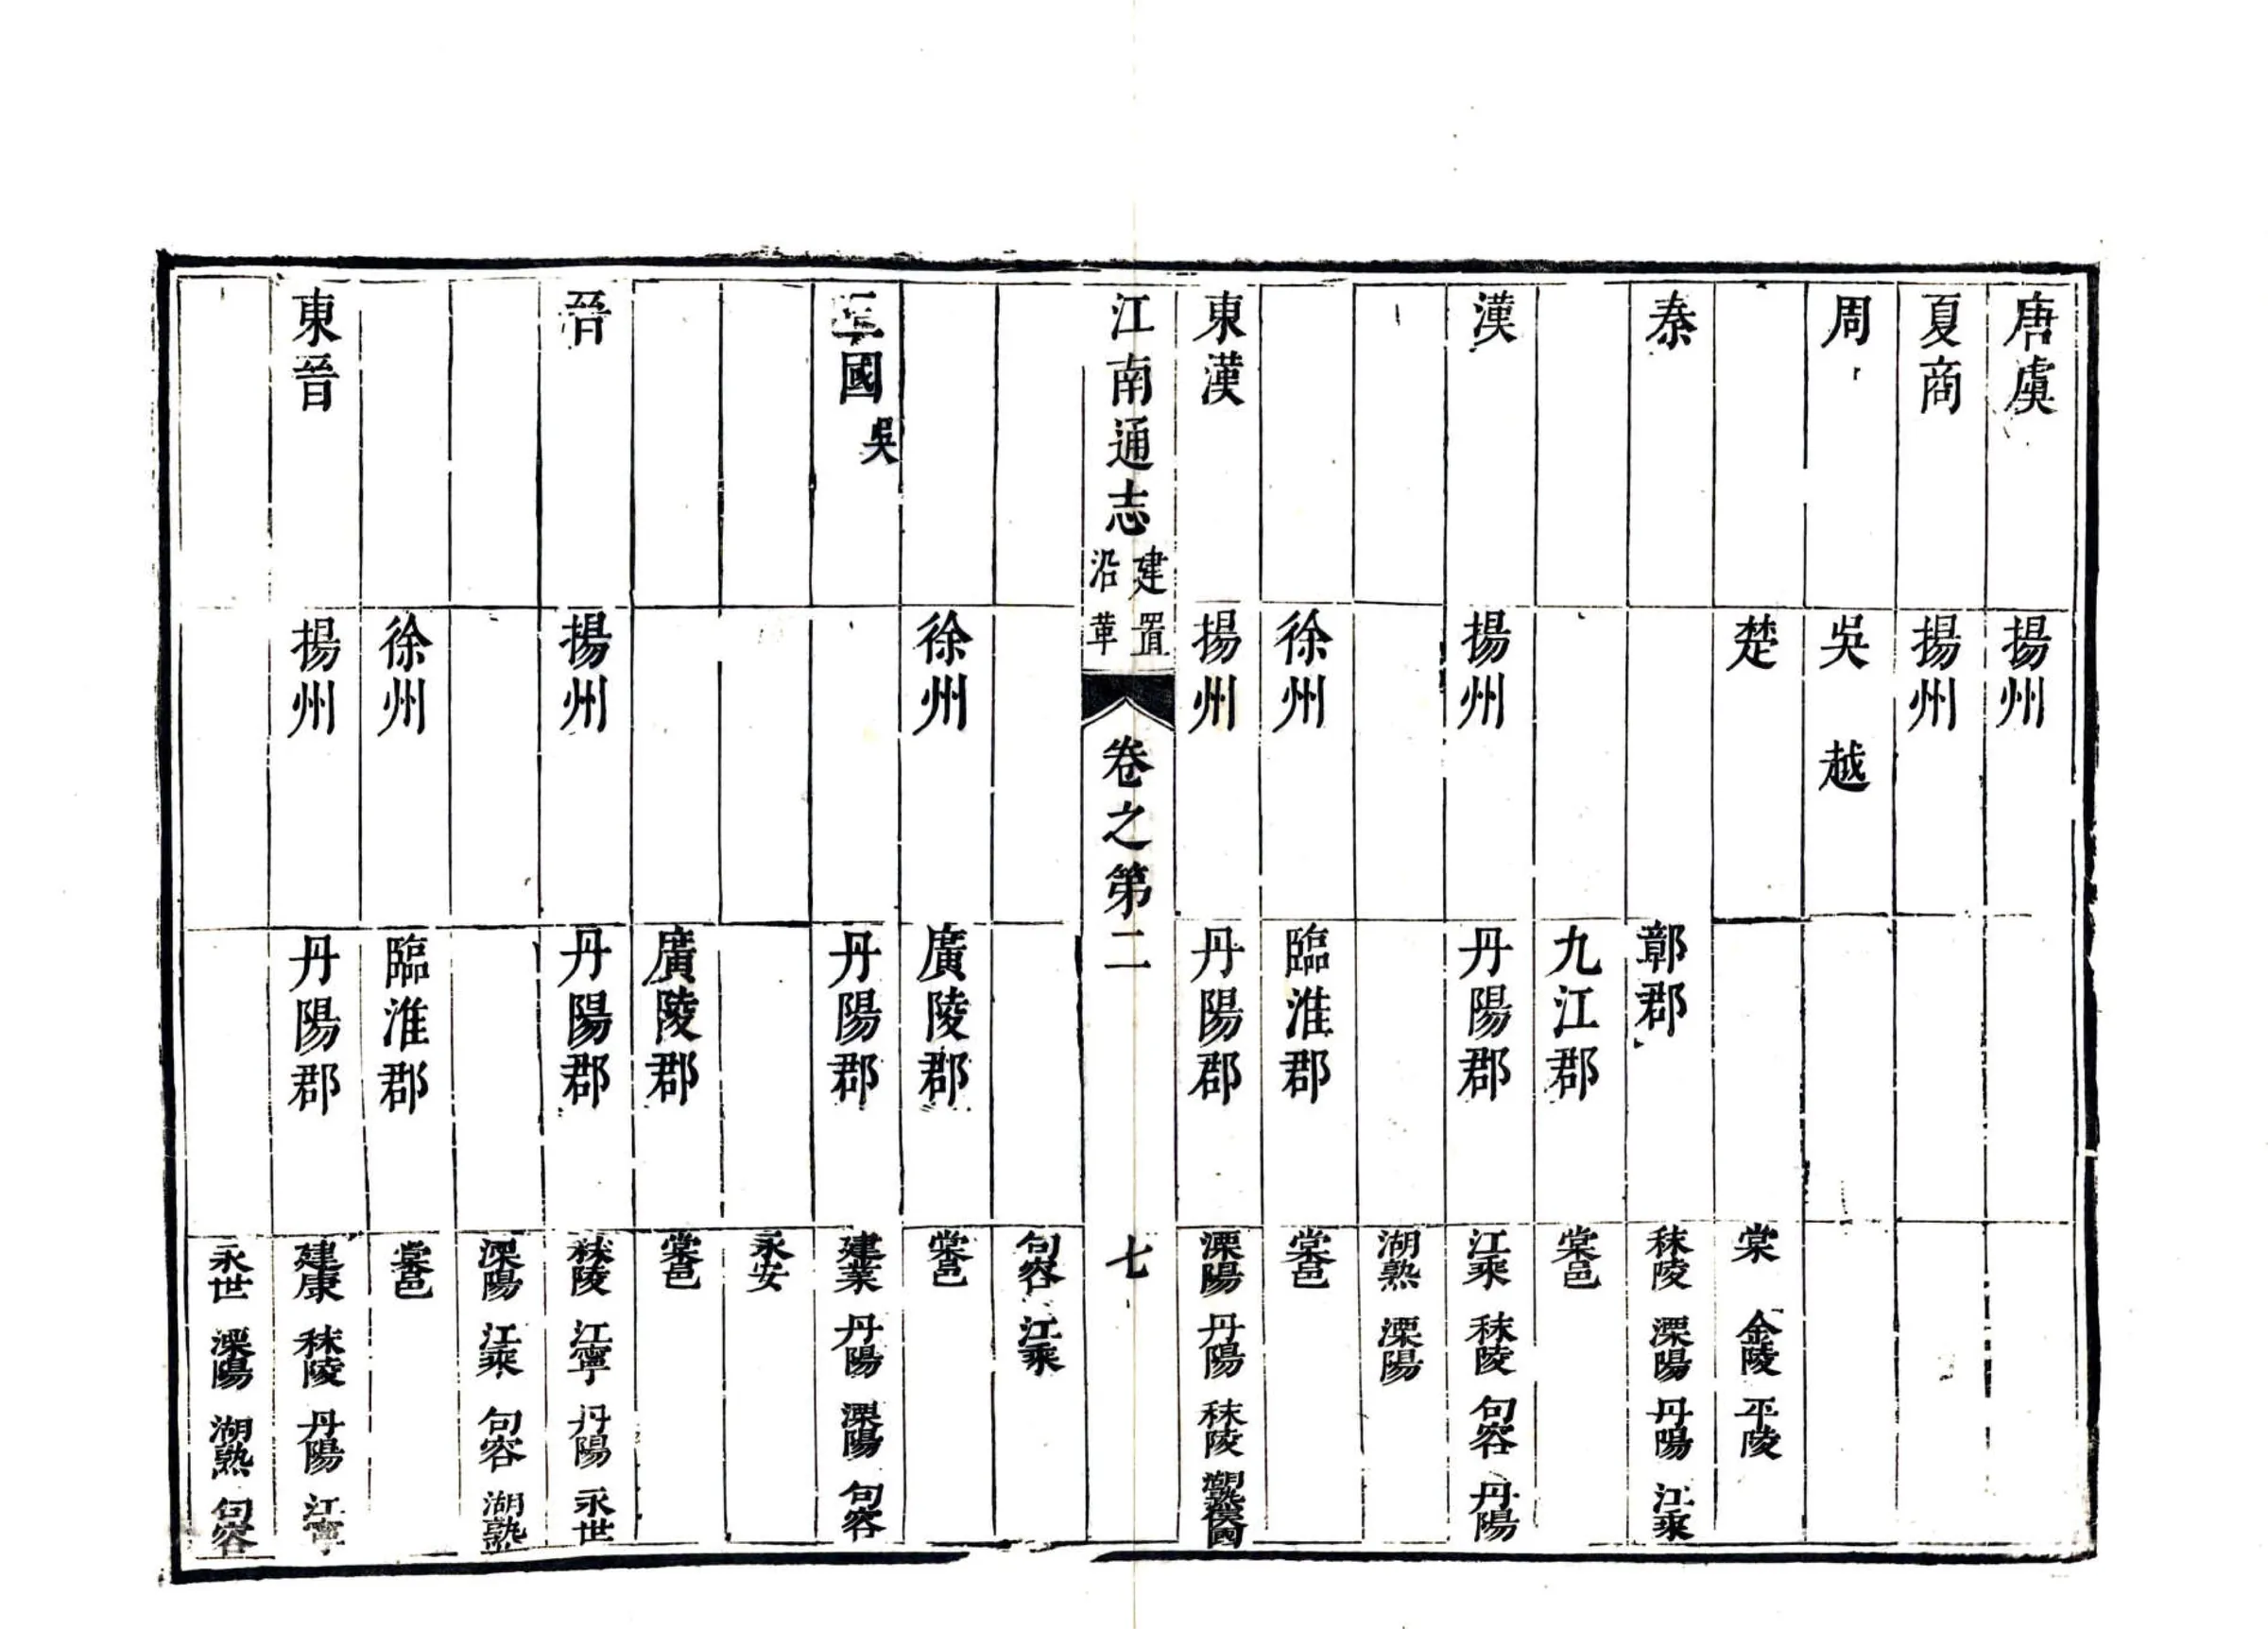 唐虞 揚州
夏商 揚州
周 吳 越
楚 棠 金陵 平陵
秦 鄣郡 秣陵 溧陽 丹陽 江乘
九江郡 棠邑
漢 揚州 丹陽郡 江乘 秣陵 句容 丹陽
湖熟 溧陽
徐州 臨淮郡 棠邑
東漢 揚州 丹陽郡 溧陽 丹陽 秣陵 湖熟侯國
江南通志 建置沿革 卷之第二 七
句容 江乘
徐州 廣陵郡 棠邑
三國吳 丹陽郡 建業 丹陽 溧陽 句容
永安
廣陵郡 棠邑
晉 揚州 丹陽郡 秣陵 江寧 丹陽 永世
溧陽 江乘 句容 湖熟
徐州 臨淮郡 棠邑
東晉 揚州 丹陽郡 建康 秣陵 丹陽 江寧
永世 溧陽 湖熟 句容